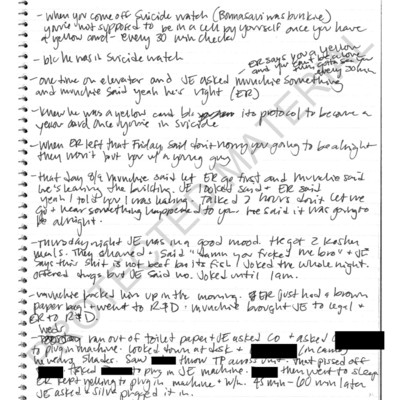 - when you come off suicide watch (Bonnasari was bunkie)
you're not supposed to be in a cell by yourself once you have
a yellow card - every 30 min check
- b/c he was in suicide watch
ER says you a yellow
and you can't be alone
every 30 min
- one time on elevator and JE asked munchie something
and munchie said yeah he's right (ER)
- Knew he was a yellow card b/c its protocol to become a
card once you're in suicide
- When ER left that Friday said don't worry you going to be alright
they won't put you w/ a young guy
- that day 8/9 munchie said let ER go first and munchie said
he's leaving the building. JE looked sad & ER said
yeah I told you I was leaving. Talked 2 hours don't let me
go & hear something happened to you. He said it was going to
be alright.
- Thursday night JE was in a good mood. He got 2 kosher
meals. They shared. Said "damn you fucked me bro" & JE
says this shit is not beef its fish / Joked the whole night.
offered drugs but JE said no. Joked until 1am.
- munchie picked him up in the morning. ER just had a brown
paper bag & went to R&D. munchie brought JE to legal &
ER to R&D.
Wed.
ran out of toilet paper & JE asked CO & asked
to plug in machine. looked down at desk &
Shades. Saw throw TP across that pissed off
JE to plug in JE machine. then went to sleep
ER kept yelling to plug in machine & w/in 45 min - 60 min later
JE asked & plugged it in.
PROTECTED MATERIAL